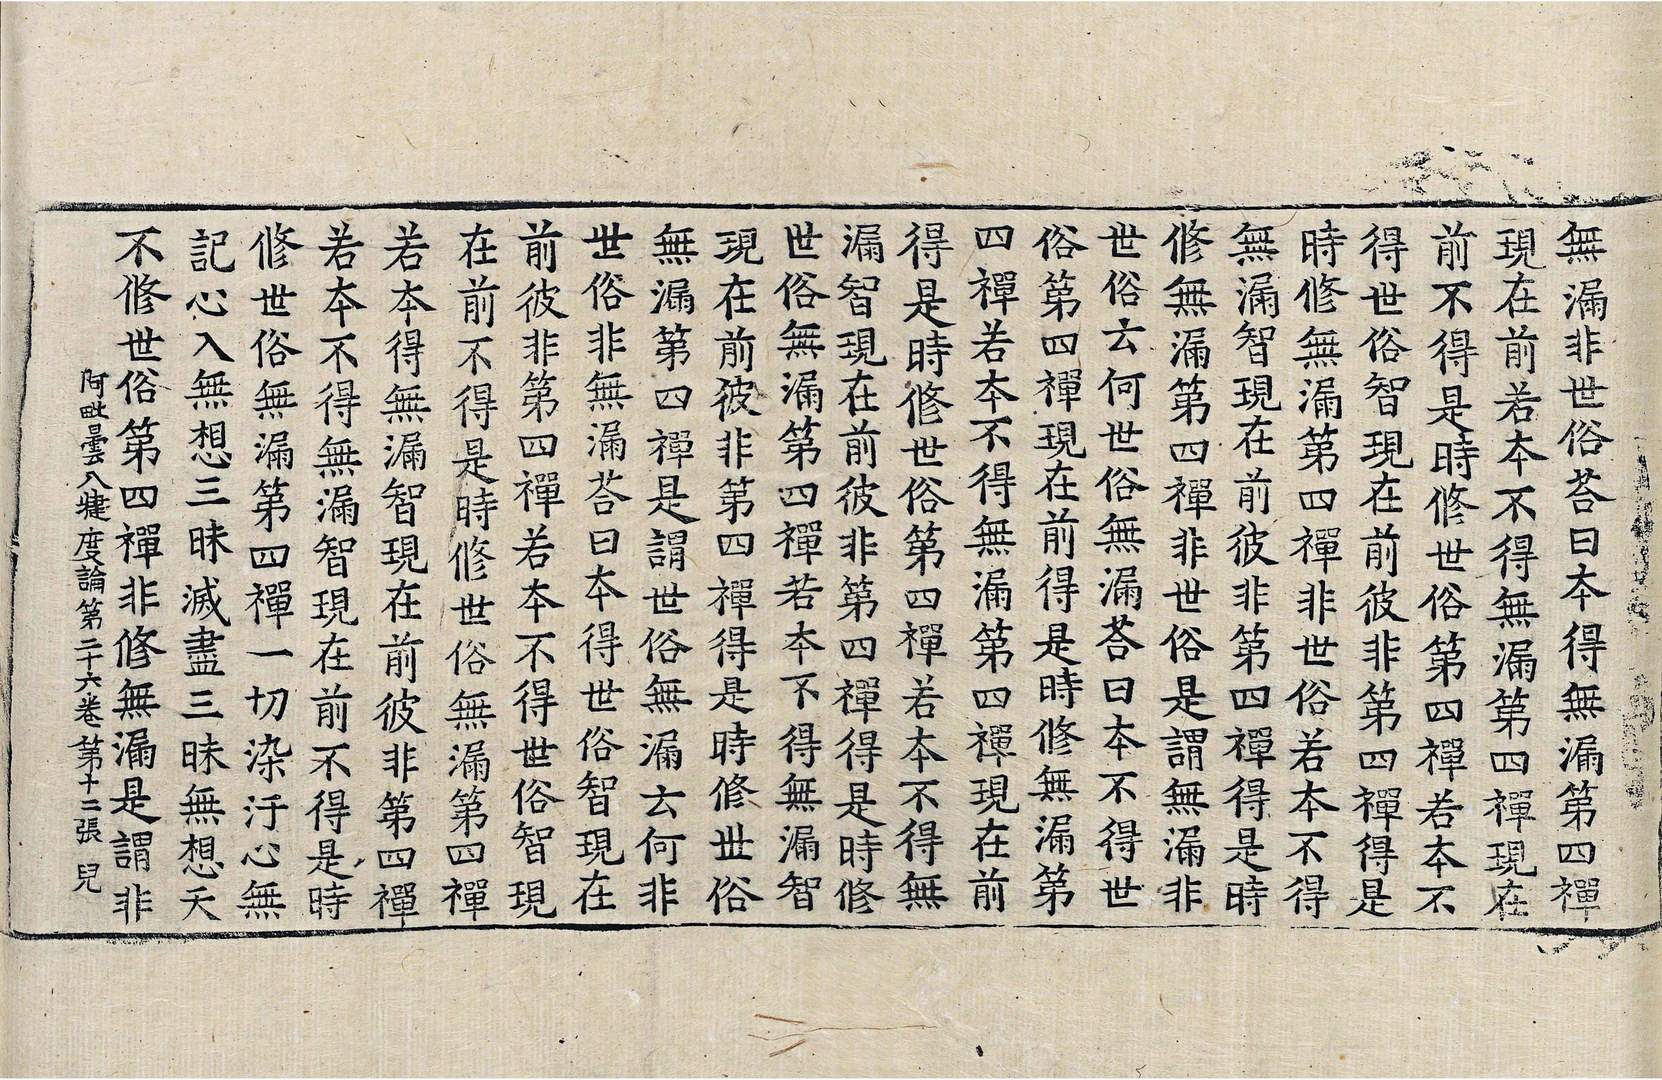 無漏非世俗荅曰本得無漏第四禪
現在前若本不得無漏第四禪現在
前不得是時修世俗第四禪若本不
得世俗智現在前彼非第四禪得是
時修無漏第四禪非世俗若本不得
無漏智現在前彼非第四禪得是時
修無漏第四禪非世俗是謂無漏非
世俗云何世俗無漏荅曰本不得世
俗第四禪現在前得是時修無漏第
四禪若本不得無漏第四禪現在前
得是時修世俗第四禪若本不得無
漏智現在前彼非第四禪得是時修
世俗無漏第四禪若本不得無漏智
現在前彼非第四禪得是時修世俗
無漏第四禪是謂世俗無漏云何非
世俗非無漏荅曰本得世俗智現在
前彼非第四禪若本不得世俗智現
在前不得是時修世俗無漏第四禪
若本得無漏智現在前彼非第四禪
若本不得無漏智現在前不得是時
修世俗無漏第四禪一切染汙心無
記心入無想三昧滅盡三昧無想天
不修世俗第四禪非修無漏是謂非
阿毗曇八犍度論第二十六卷 第十二張 兒